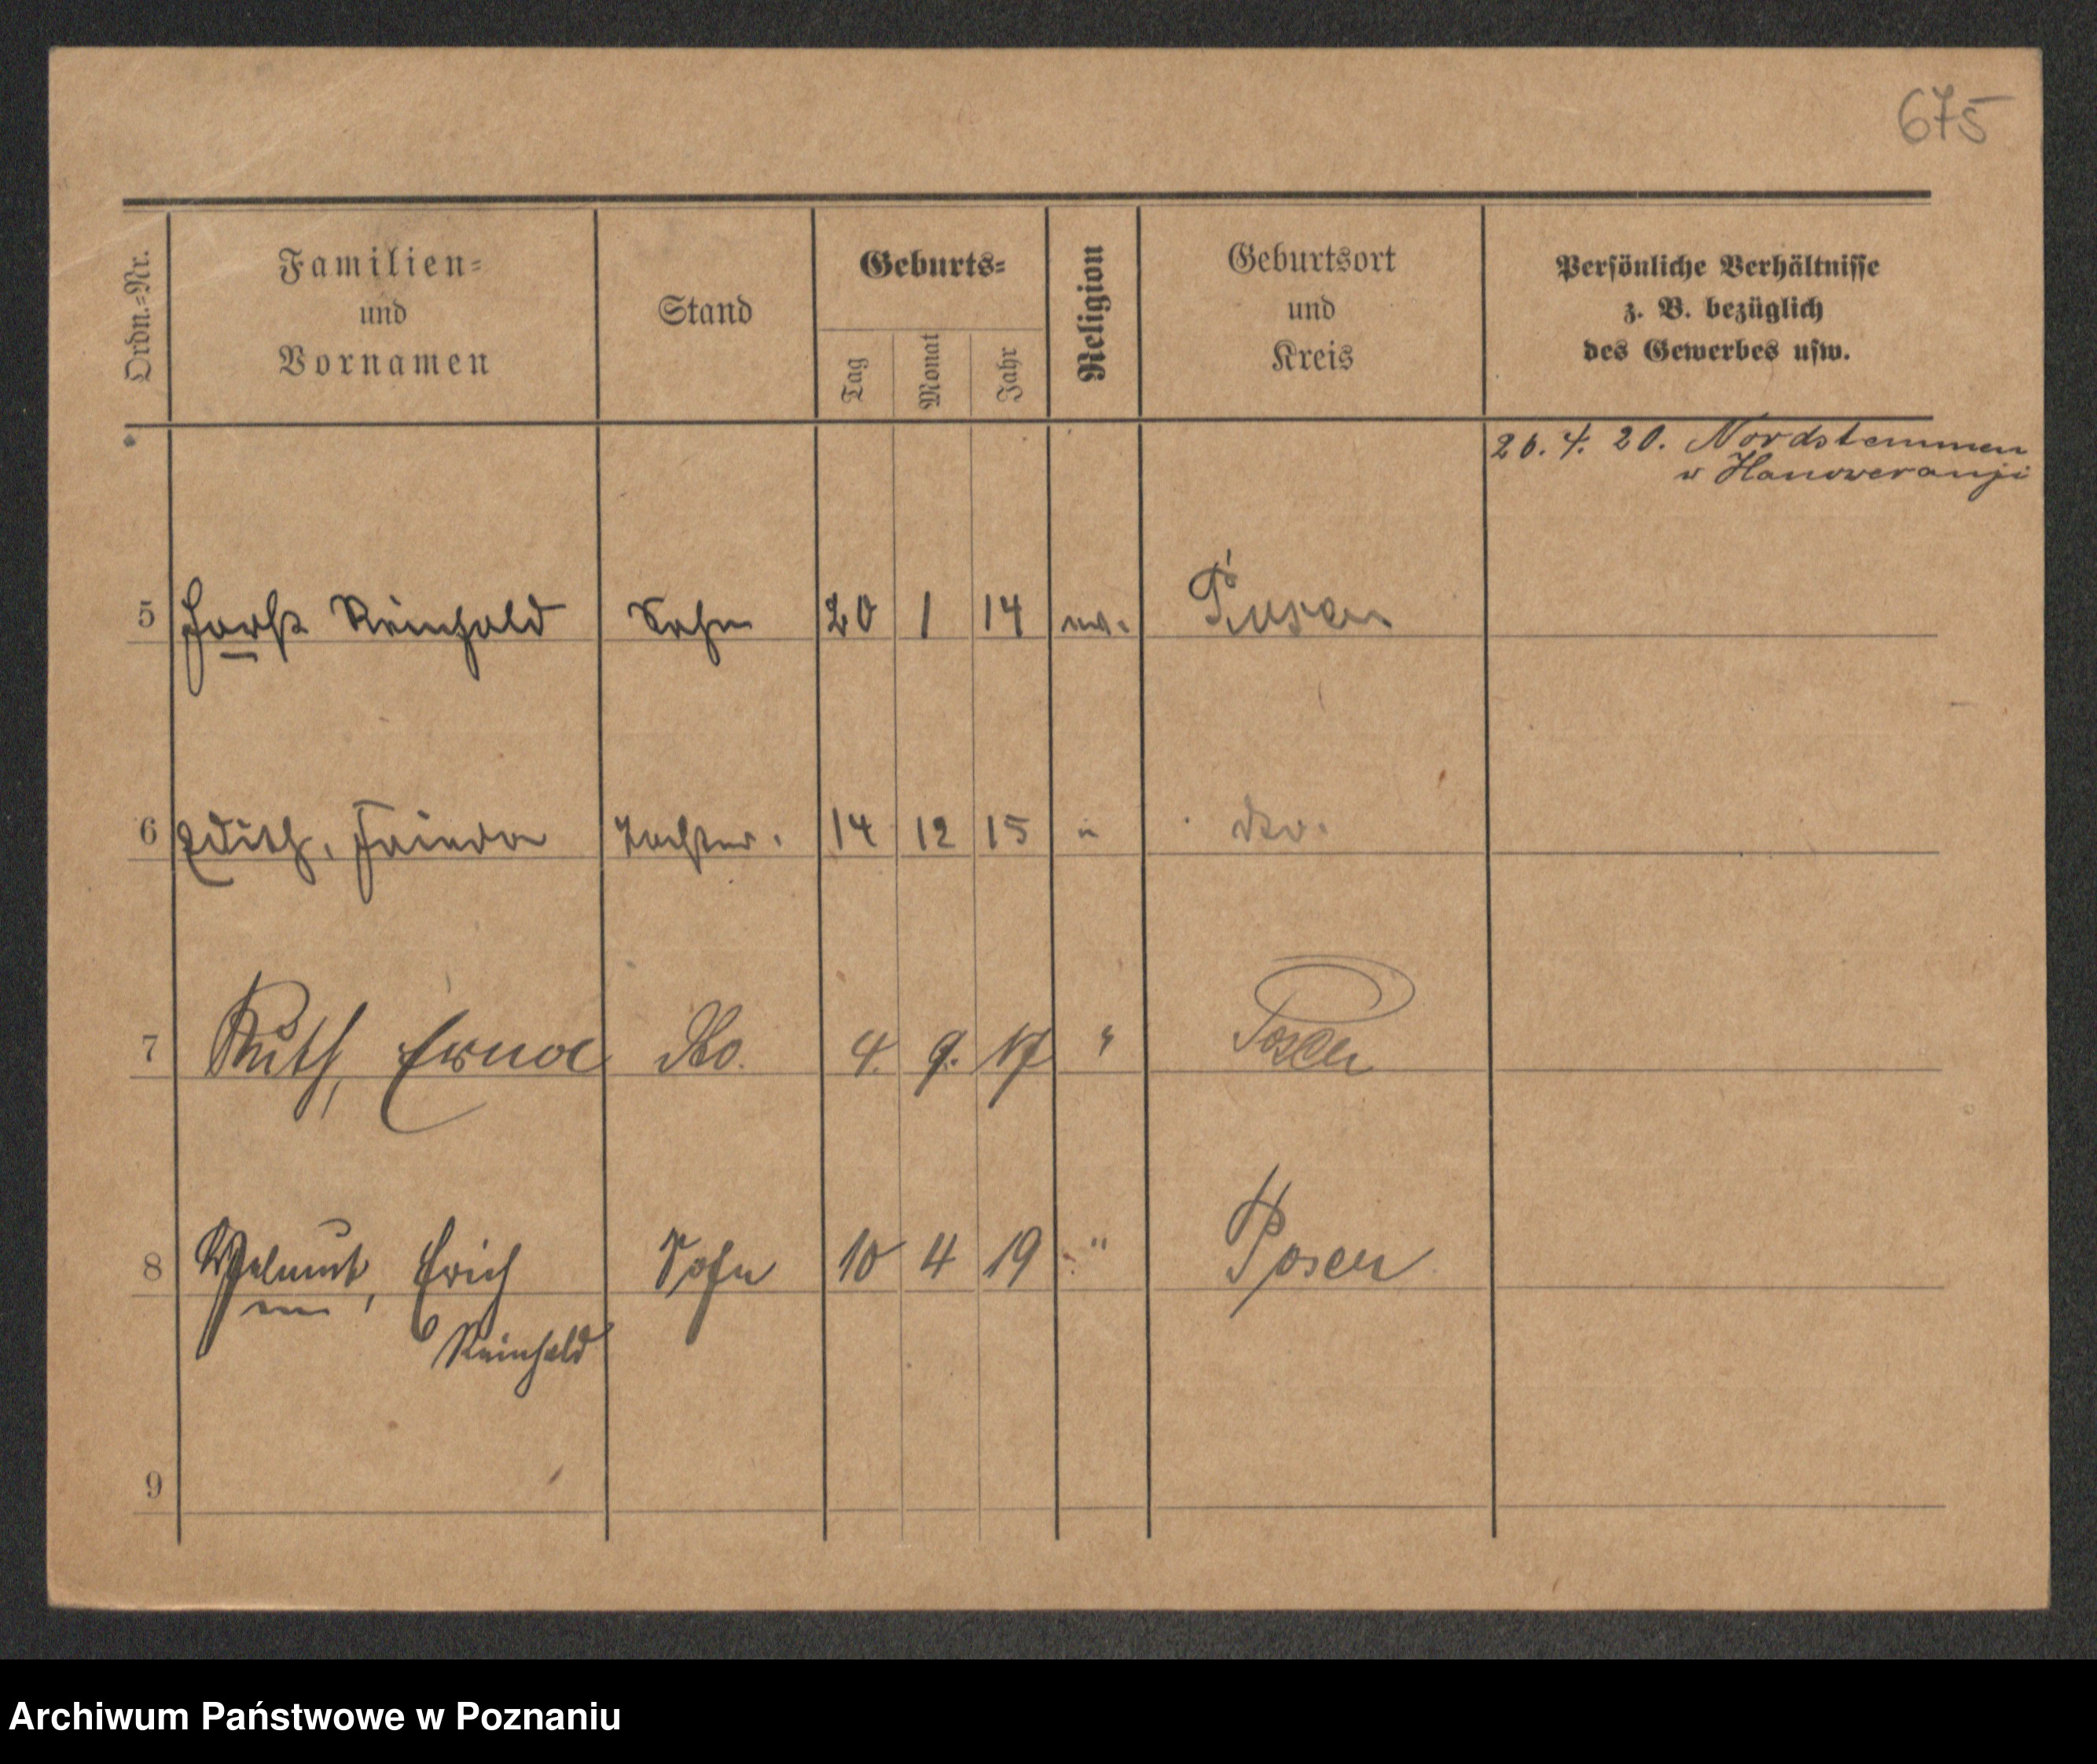 675
Ordn.=Nr.
Familien=
und
Vornamen
Stand
Geburts=
Tag
Monat
Jahr
Religion
Geburtsort
und
Kreis
Persönliche Verhältnisse
z. B. bezüglich
des Gewerbes usw.
26. 4. 20. Nordstemmen
w Hanoweranji
5 Horst Reinhold Sohn 20 1 14 ev. Posen
6 Edith, Frieda Tochter. 14 12 15 " dto.
7 Ruth, Erna dto. 4. 9. 17 " Posen
8 Helmut, Erich Sohn 10 4 19 " Posen
Reinhold
9
Archiwum Państwowe w Poznaniu